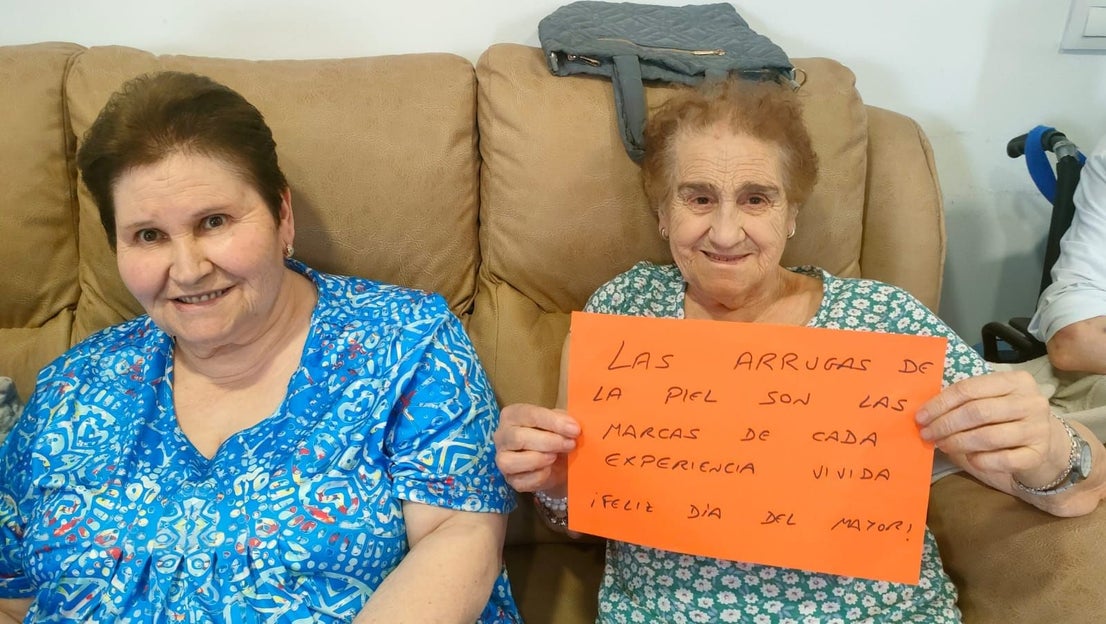 LAS ARRUGAS DE
LA PIEL SON LAS
MARCAS DE CADA
EXPERIENCIA VIVIDA
¡FELIZ DÍA DEL MAYOR!